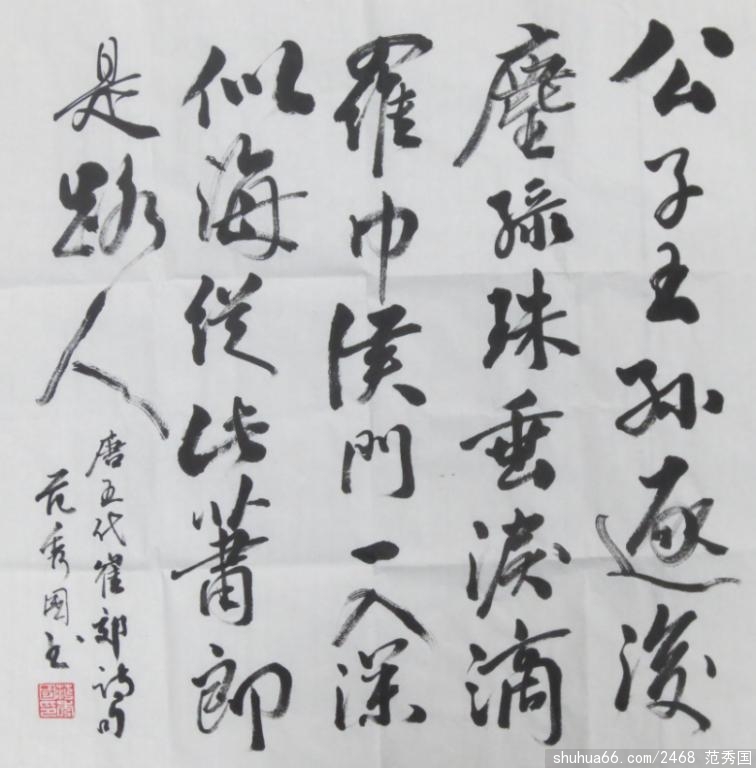 公子王孙逐後
塵緑珠垂淚滴
羅巾侯門一入深
似海從此蕭郎
是路人
唐五代崔郊詩句
范秀国书
shuhua66.com/2468 范秀国